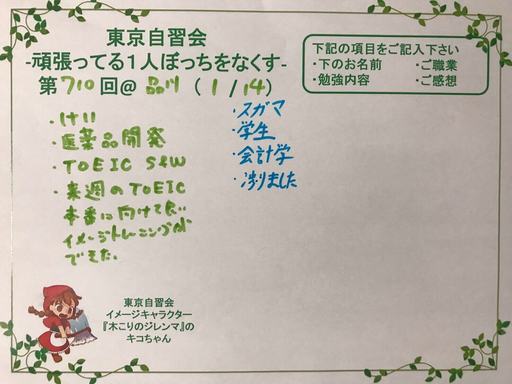 東京自習会
-頑張ってる1人ぼっちをなくす-
第710回@ 品川 (1/14)
下記の項目をご記入下さい
・下のお名前 ・ご職業
・勉強内容 ・ご感想
・けい
・医薬品開発
・TOEIC S&W
・来週のTOEIC
本番に向けて良い
イメージトレーニングが
できた。
・スガマ
・学生
・会計学
・捗りました
東京自習会
イメージキャラクター
『木こりのジレンマ』の
キコちゃん